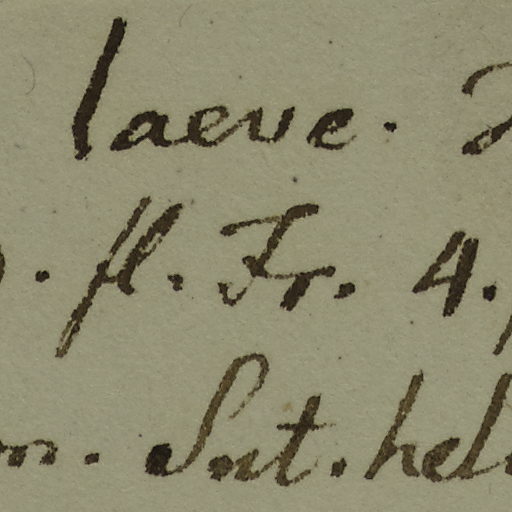 laeve.
. fl. Fr. 4.
. Sut. hel